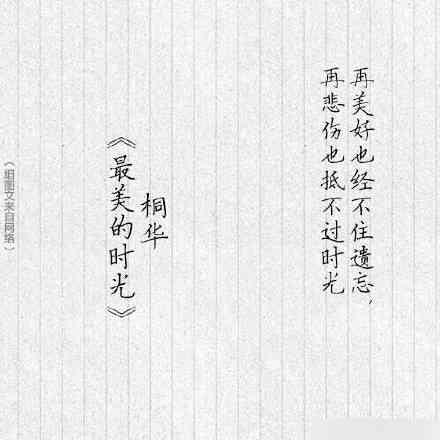 再美好也经不住遗忘，
再悲伤也抵不过时光
桐华
《最美的时光》
（组图文来自网络）